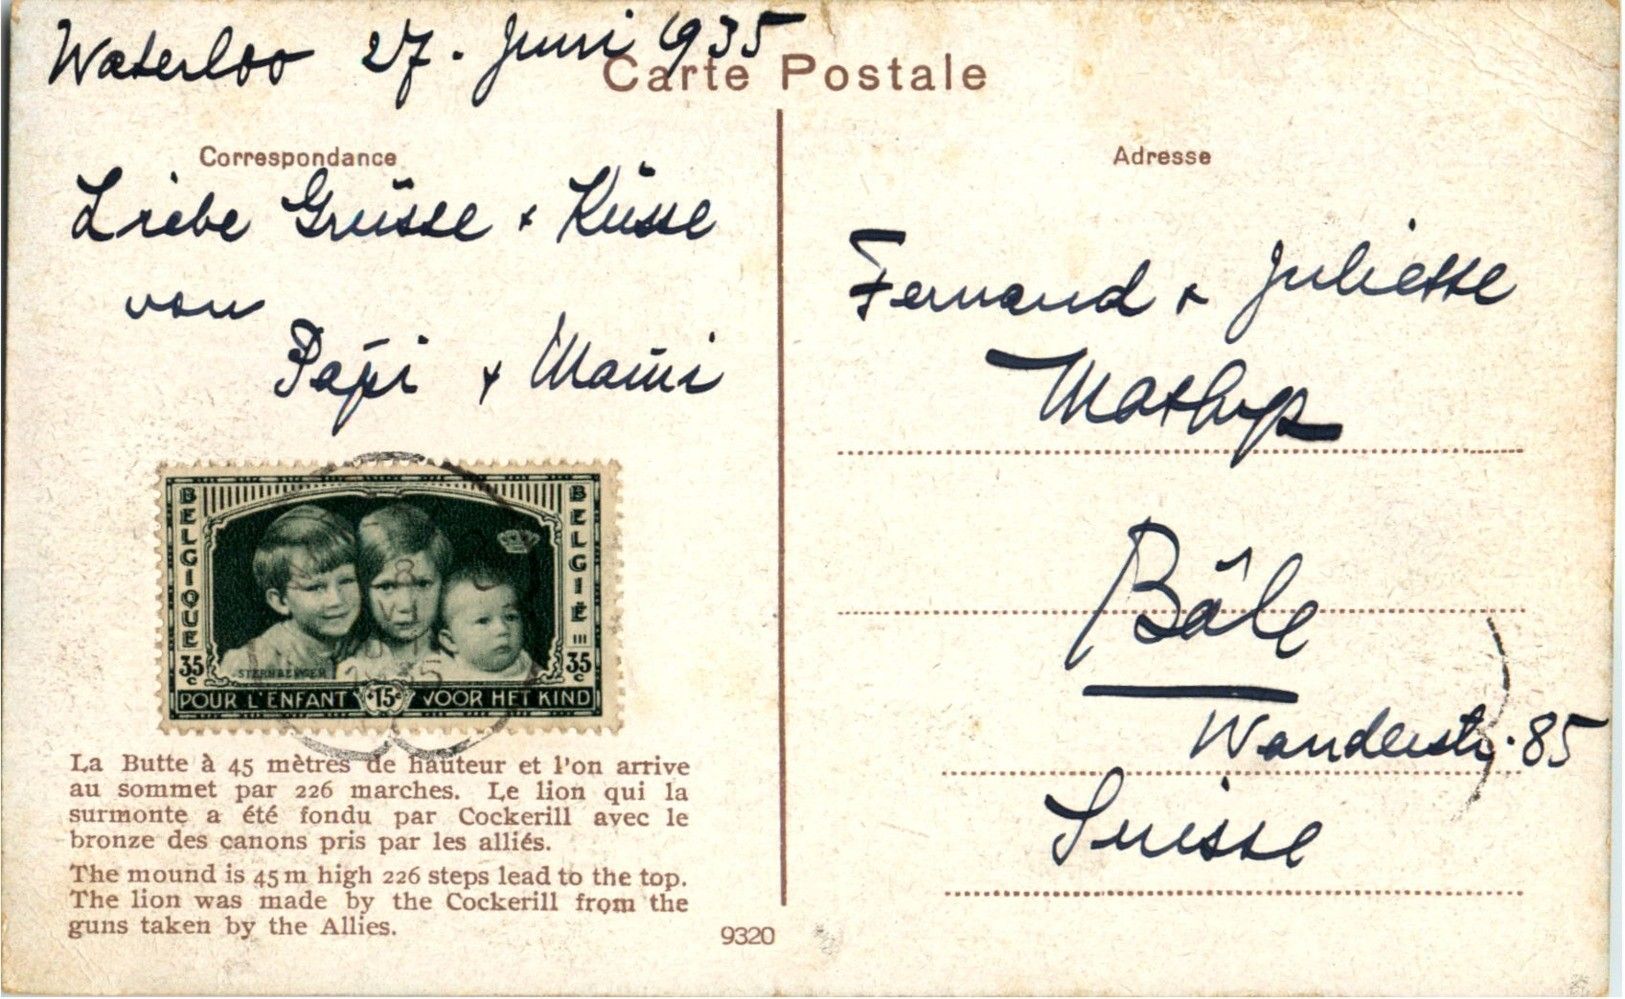 Waterloo 27. Juni 1935
Carte Postale
Correspondance
Liebe Grüsse + Küsse
von
Papi + Mami
BELGIQUE
BELGIË
35c
35c
STERNBERGER
POUR L'ENFANT 15c VOOR HET KIND
La Butte à 45 mètres de hauteur et l'on arrive
au sommet par 226 marches. Le lion qui la
surmonte a été fondu par Cockerill avec le
bronze des canons pris par les alliés.
The mound is 45 m high 226 steps lead to the top.
The lion was made by the Cockerill from the
guns taken by the Allies.
9320
Adresse
Fernand + Juliette
Bâle
Wanderstr. 85
Suisse